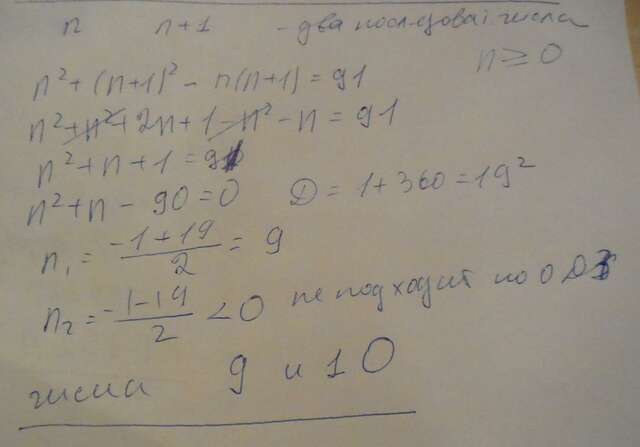 n n+1 - два послědоват числа
n ≥ 0
n² + (n+1)² - n(n+1) = 91
n² + n² + 2n + 1 - n² - n = 91
n² + n + 1 = 91
n² + n - 90 = 0 D = 1 + 360 = 19²
n₁ = (-1+19)/2 = 9
n₂ = (-1-19)/2 < 0 не подходит по ОДЗ
числа 9 и 10